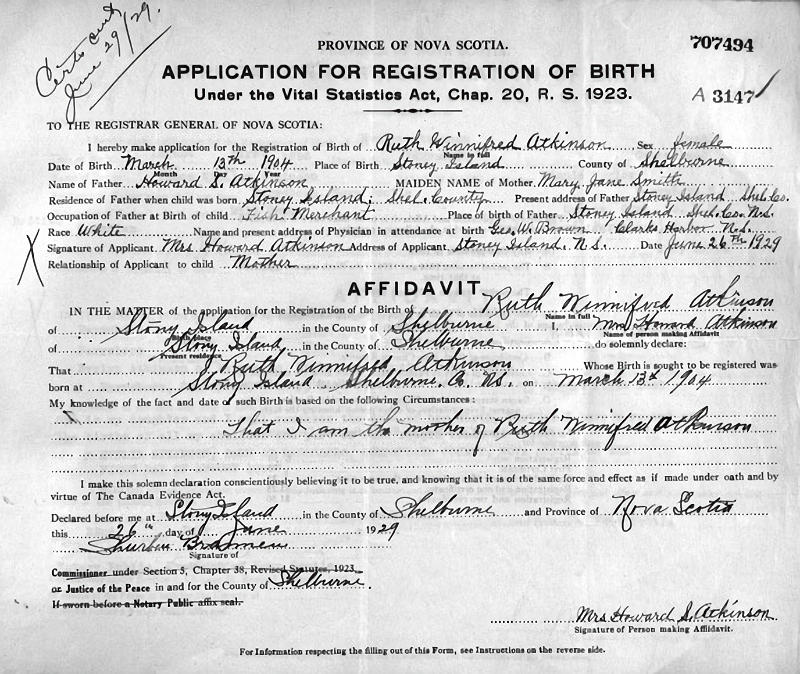 Certs and
June 29/29.
PROVINCE OF NOVA SCOTIA.
707494
APPLICATION FOR REGISTRATION OF BIRTH
Under the Vital Statistics Act, Chap. 20, R. S. 1923.
A 3147
TO THE REGISTRAR GENERAL OF NOVA SCOTIA:
I hereby make application for the Registration of Birth of Ruth Winnifred Atkinson Sex female
Name in full
Date of Birth March 13th 1904 Place of Birth Stoney Island County of Shelburne
Month Day Year
Name of Father Howard S. Atkinson MAIDEN NAME of Mother Mary Jane Smith
Residence of Father when child was born Stoney Island. Shel. County Present address of Father Stoney Island Shel. Co.
Occupation of Father at Birth of child Fish Merchant Place of birth of Father Stoney Island Shel. Co. N.S.
Race White Name and present address of Physician in attendance at birth Geo. W. Brown Clarks Harbor N.S.
Signature of Applicant Mrs Howard Atkinson Address of Applicant Stoney Island. N.S. Date June 26th 1929
Relationship of Applicant to child Mother
AFFIDAVIT
IN THE MATTER of the application for the Registration of the Birth of Ruth Winnifred Atkinson
Name in full
of Stony Island in the County of Shelburne I, Mrs. Howard Atkinson
Birth place
Name of person making Affidavit
of Stony Island in the County of Shelburne do solemnly declare:
Present residence
That Ruth Winnifred Atkinson Whose Birth is sought to be registered was
born at Stony Island Shelburne. Co. N.S. on March 13th 1904
My knowledge of the fact and date of such Birth is based on the following Circumstances:
That I am the mother of Ruth Winnifred Atkinson
I make this solemn declaration conscientiously believing it to be true, and knowing that it is of the same force and effect as if made under oath and by
virtue of The Canada Evidence Act.
Declared before me at Stony Island in the County of Shelburne and Province of Nova Scotia
this 26th day of June 1929
Signature of
Commissioner under Section 5, Chapter 38, Revised Statutes, 1923
or Justice of the Peace in and for the County of Shelburne.
If sworn before a Notary Public affix seal.
Mrs Howard S. Atkinson
Signature of Person making Affidavit.
For Information respecting the filling out of this Form, see Instructions on the reverse side.